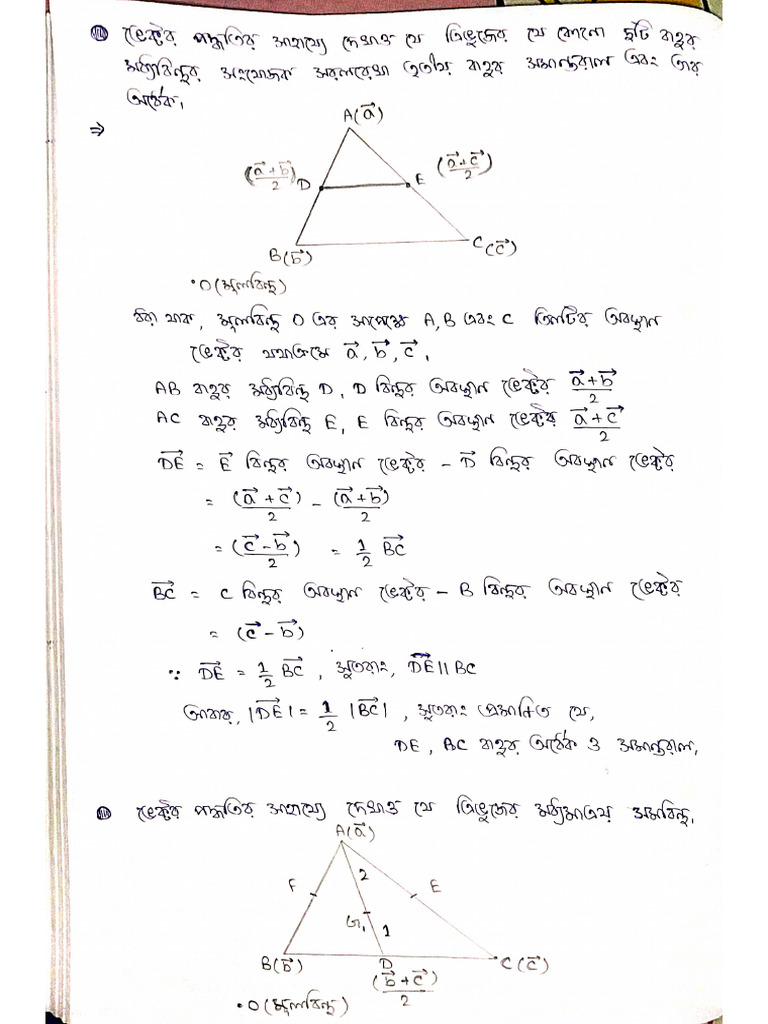 ভেক্টর পদ্ধতির সাহায্যে দেখাও যে ত্রিভুজের যে কোনো দুটি বাহুর
মধ্যবিন্দুর সংযোজক সরলরেখা তৃতীয় বাহুর সমান্তরাল এবং তার
অর্ধেক।
⇒
A(a⃗)
(a⃗+b⃗)/2 D E (a⃗+c⃗)/2
B(b⃗) C(c⃗)
•O(মূলবিন্দু)
ধরা যাক, মূলবিন্দু O এর সাপেক্ষে A, B এবং C তিনটির অবস্থান
ভেক্টর যথাক্রমে a⃗, b⃗, c⃗.
AB বাহুর মধ্যবিন্দু D, D বিন্দুর অবস্থান ভেক্টর (a⃗+b⃗)/2
AC বাহুর মধ্যবিন্দু E, E বিন্দুর অবস্থান ভেক্টর (a⃗+c⃗)/2
DE⃗ = E⃗ বিন্দুর অবস্থান ভেক্টর - D⃗ বিন্দুর অবস্থান ভেক্টর
= (a⃗+c⃗)/2 - (a⃗+b⃗)/2
= (c⃗-b⃗)/2 = 1/2 BC⃗
BC⃗ = C বিন্দুর অবস্থান ভেক্টর - B বিন্দুর অবস্থান ভেক্টর
= (c⃗-b⃗)
∵ DE⃗ = 1/2 BC⃗, সুতরাং, DE⃗ || BC
আবার, |DE⃗| = 1/2 |BC⃗|, সুতরাং প্রমাণিত যে,
DE, BC বাহুর অর্ধেক ও সমান্তরাল।
ভেক্টর পদ্ধতির সাহায্যে দেখাও যে ত্রিভুজের মধ্যমাত্রয় সমবিন্দু।
A(a⃗)
2
F E
G 1
B(b⃗) D C(c⃗)
(b⃗+c⃗)/2
•O(মূলবিন্দু)